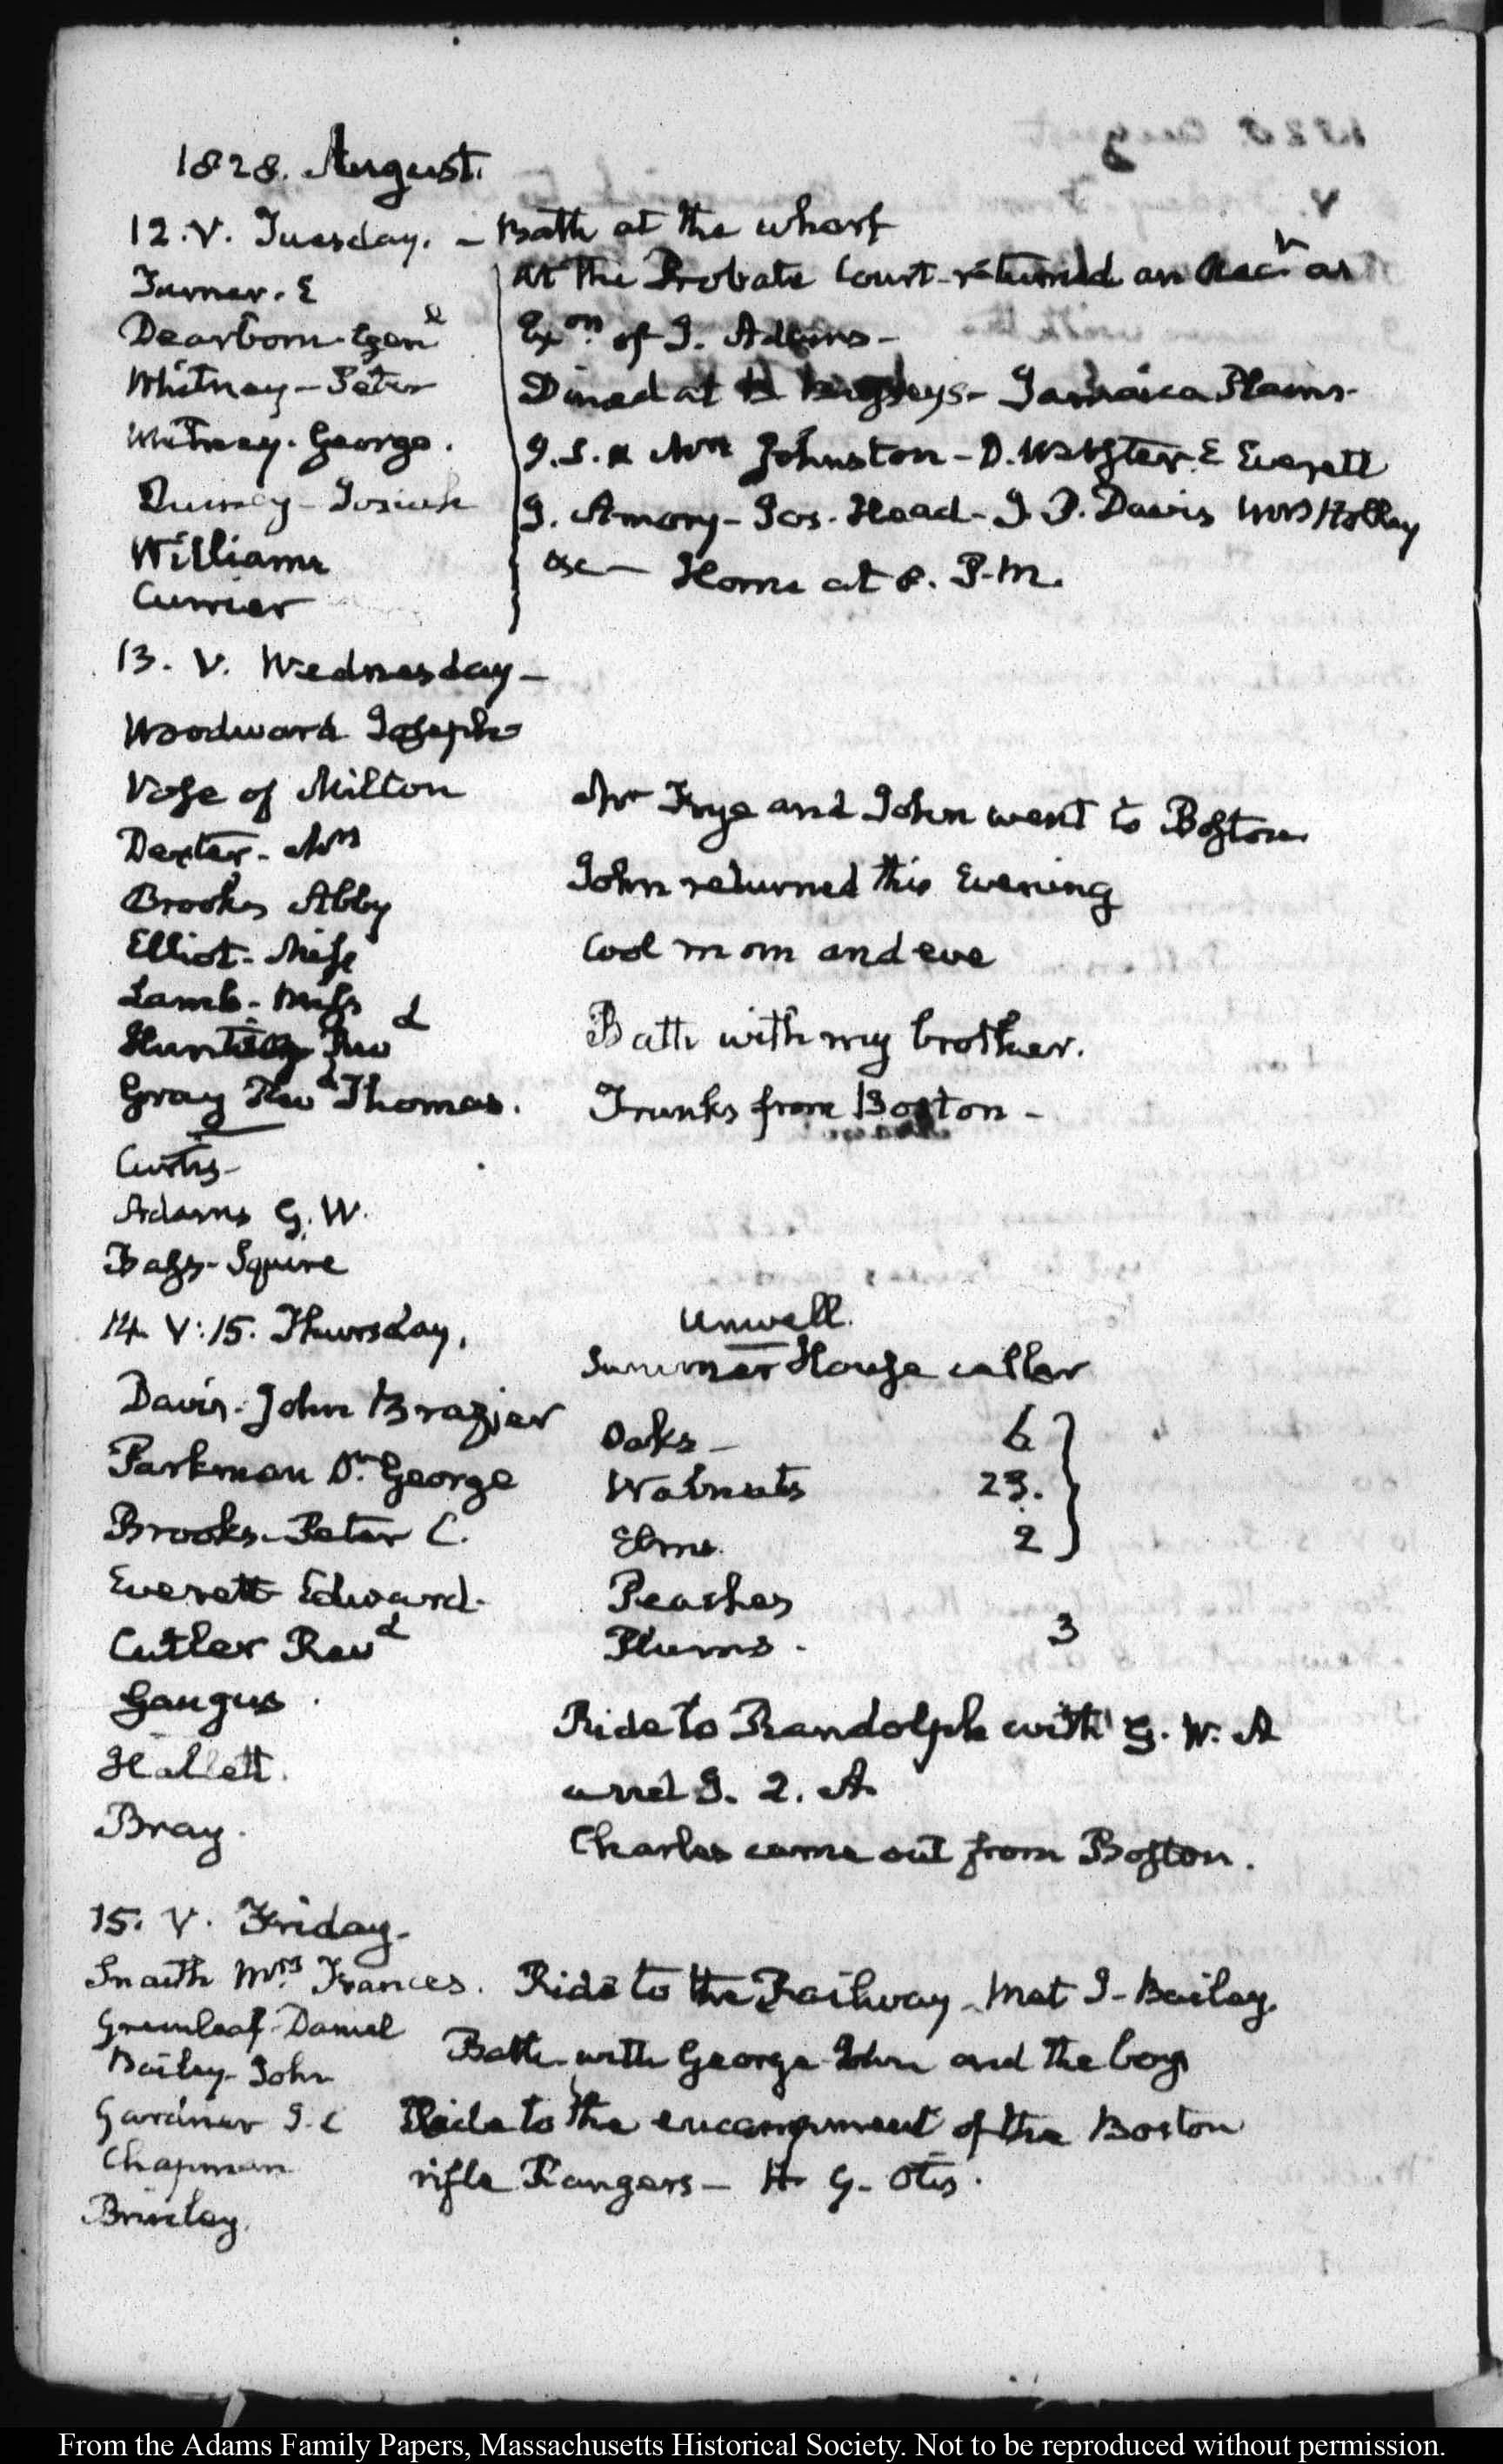 1828. August.
12. V. Tuesday. – Bath at the wharf
Turner. E
Dearborn. Gen^l
Whitney – Peter
Whitney. George.
Quincy – Josiah
Williams
Currier
At the Probate Court – returned an Acc^t as
Ex^or. of J. Adams –
Dined at – Jamaica Plains –
J. S. & Mrs Johnston – D. Webster. E Everett
J. Amory – Jos. Head – J. P. Davis Holley
&c — Home at 8. P.M.
13. V. Wednesday –
Woodward Joseph
Vose of Milton
Dexter – Mrs
Brooks Abby
Elliot – Miss
Lamb – Miss
Rev^d
Gray Rev^d Thomas.
Curtis –
Adams G. W.
Squire
Mr Frye and John went to Boston
John returned this Evening
Cool morn and eve
Bath with my brother.
Trunks from Boston –
14. V:15. Thursday.
Davis. John Brazier
Parkman Dr. George
Brooks – Peter C.
Everett Edward.
Cutler Rev^d
Gangus.
Hallett.
Bray.
Unwell.
Summer House cellar
Oaks – 6
Walnuts 23.
Elms. 2
Peaches
Plums. 3
Ride to Randolph with G. W. A
and J. 2. A.
Charles came out from Boston.
15. V. Friday –
Snaith Mrs. Frances. Ride to the Railway – Met J – Bailey.
Greenleaf – Daniel
Bailey – John
Gardner J. C
Chapman
Brinley.
Bath – with George John and the boys
Ride to the encampment of the Boston
rifle Rangers – H G. Otis.
From the Adams Family Papers, Massachusetts Historical Society. Not to be reproduced without permission.